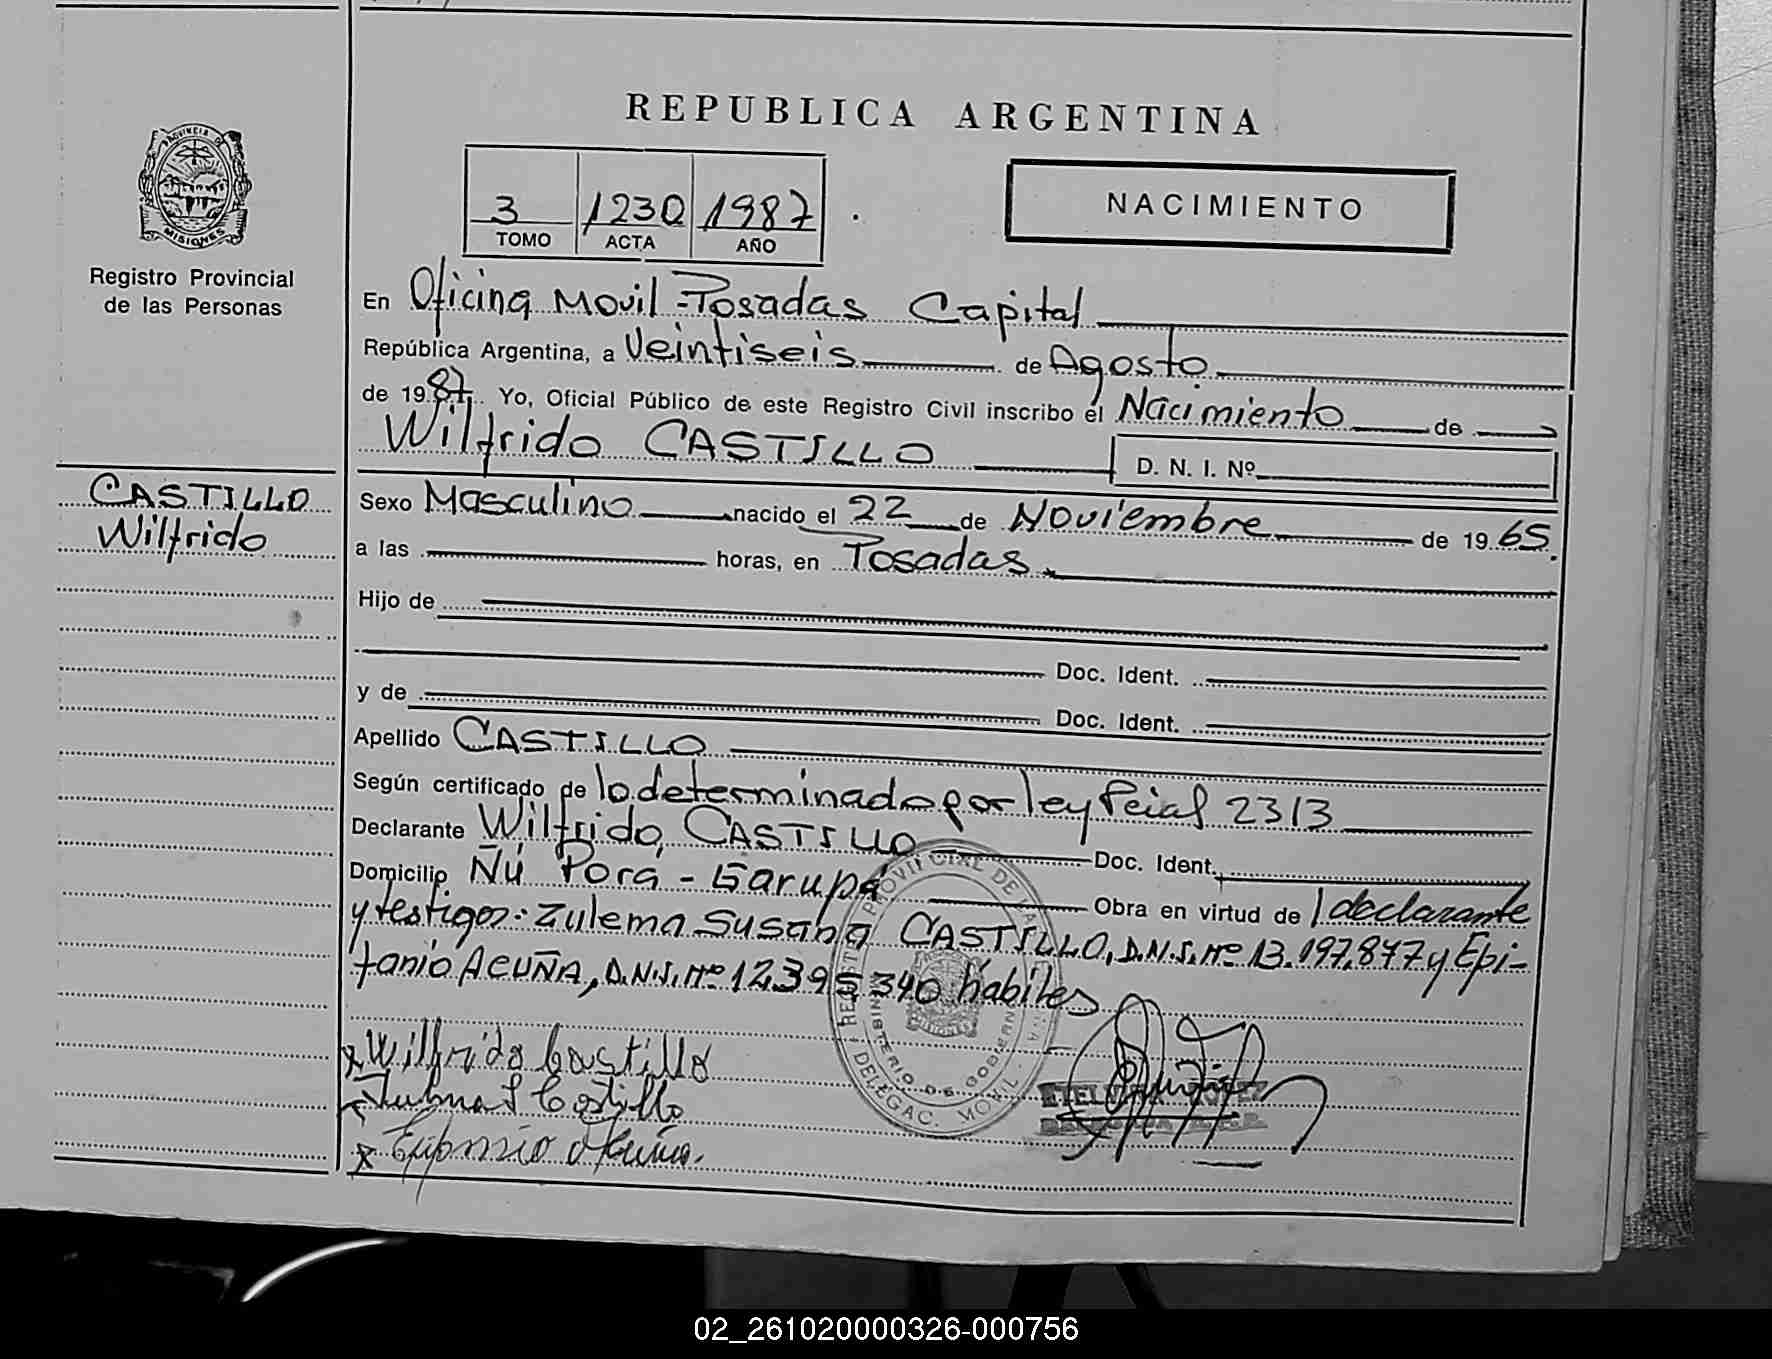 REPUBLICA ARGENTINA
PROVINCIA DE
MISIONES
Registro Provincial
de las Personas
3 1230 1987
TOMO ACTA AÑO
NACIMIENTO
En Oficina Movil - Posadas Capital
República Argentina, a Veintiseis de Agosto
de 1987. Yo, Oficial Público de este Registro Civil inscribo el Nacimiento de
Wilfrido CASTILLO D. N. I. Nº
CASTILLO
Wilfrido
Sexo Masculino nacido el 22 de Noviembre de 1965.
a las horas, en Posadas.
Hijo de
Doc. Ident.
y de Doc. Ident.
Apellido CASTILLO
Según certificado de lo determinado por ley Pcial 2313
Declarante Wilfrido, CASTILLO Doc. Ident.
Domicilio Ñú Porá - Garupá Obra en virtud de l declarante
y testigos: Zulema Susana CASTILLO, D.N.I. Nº 13.197.877 y Epi-
fanio ACUÑA, D.N.I. Nº 12.395340 hábiles
x Wilfrido Castillo
Castillo
x Acuña.
DELEGAC. MOVIL
02_261020000326-000756